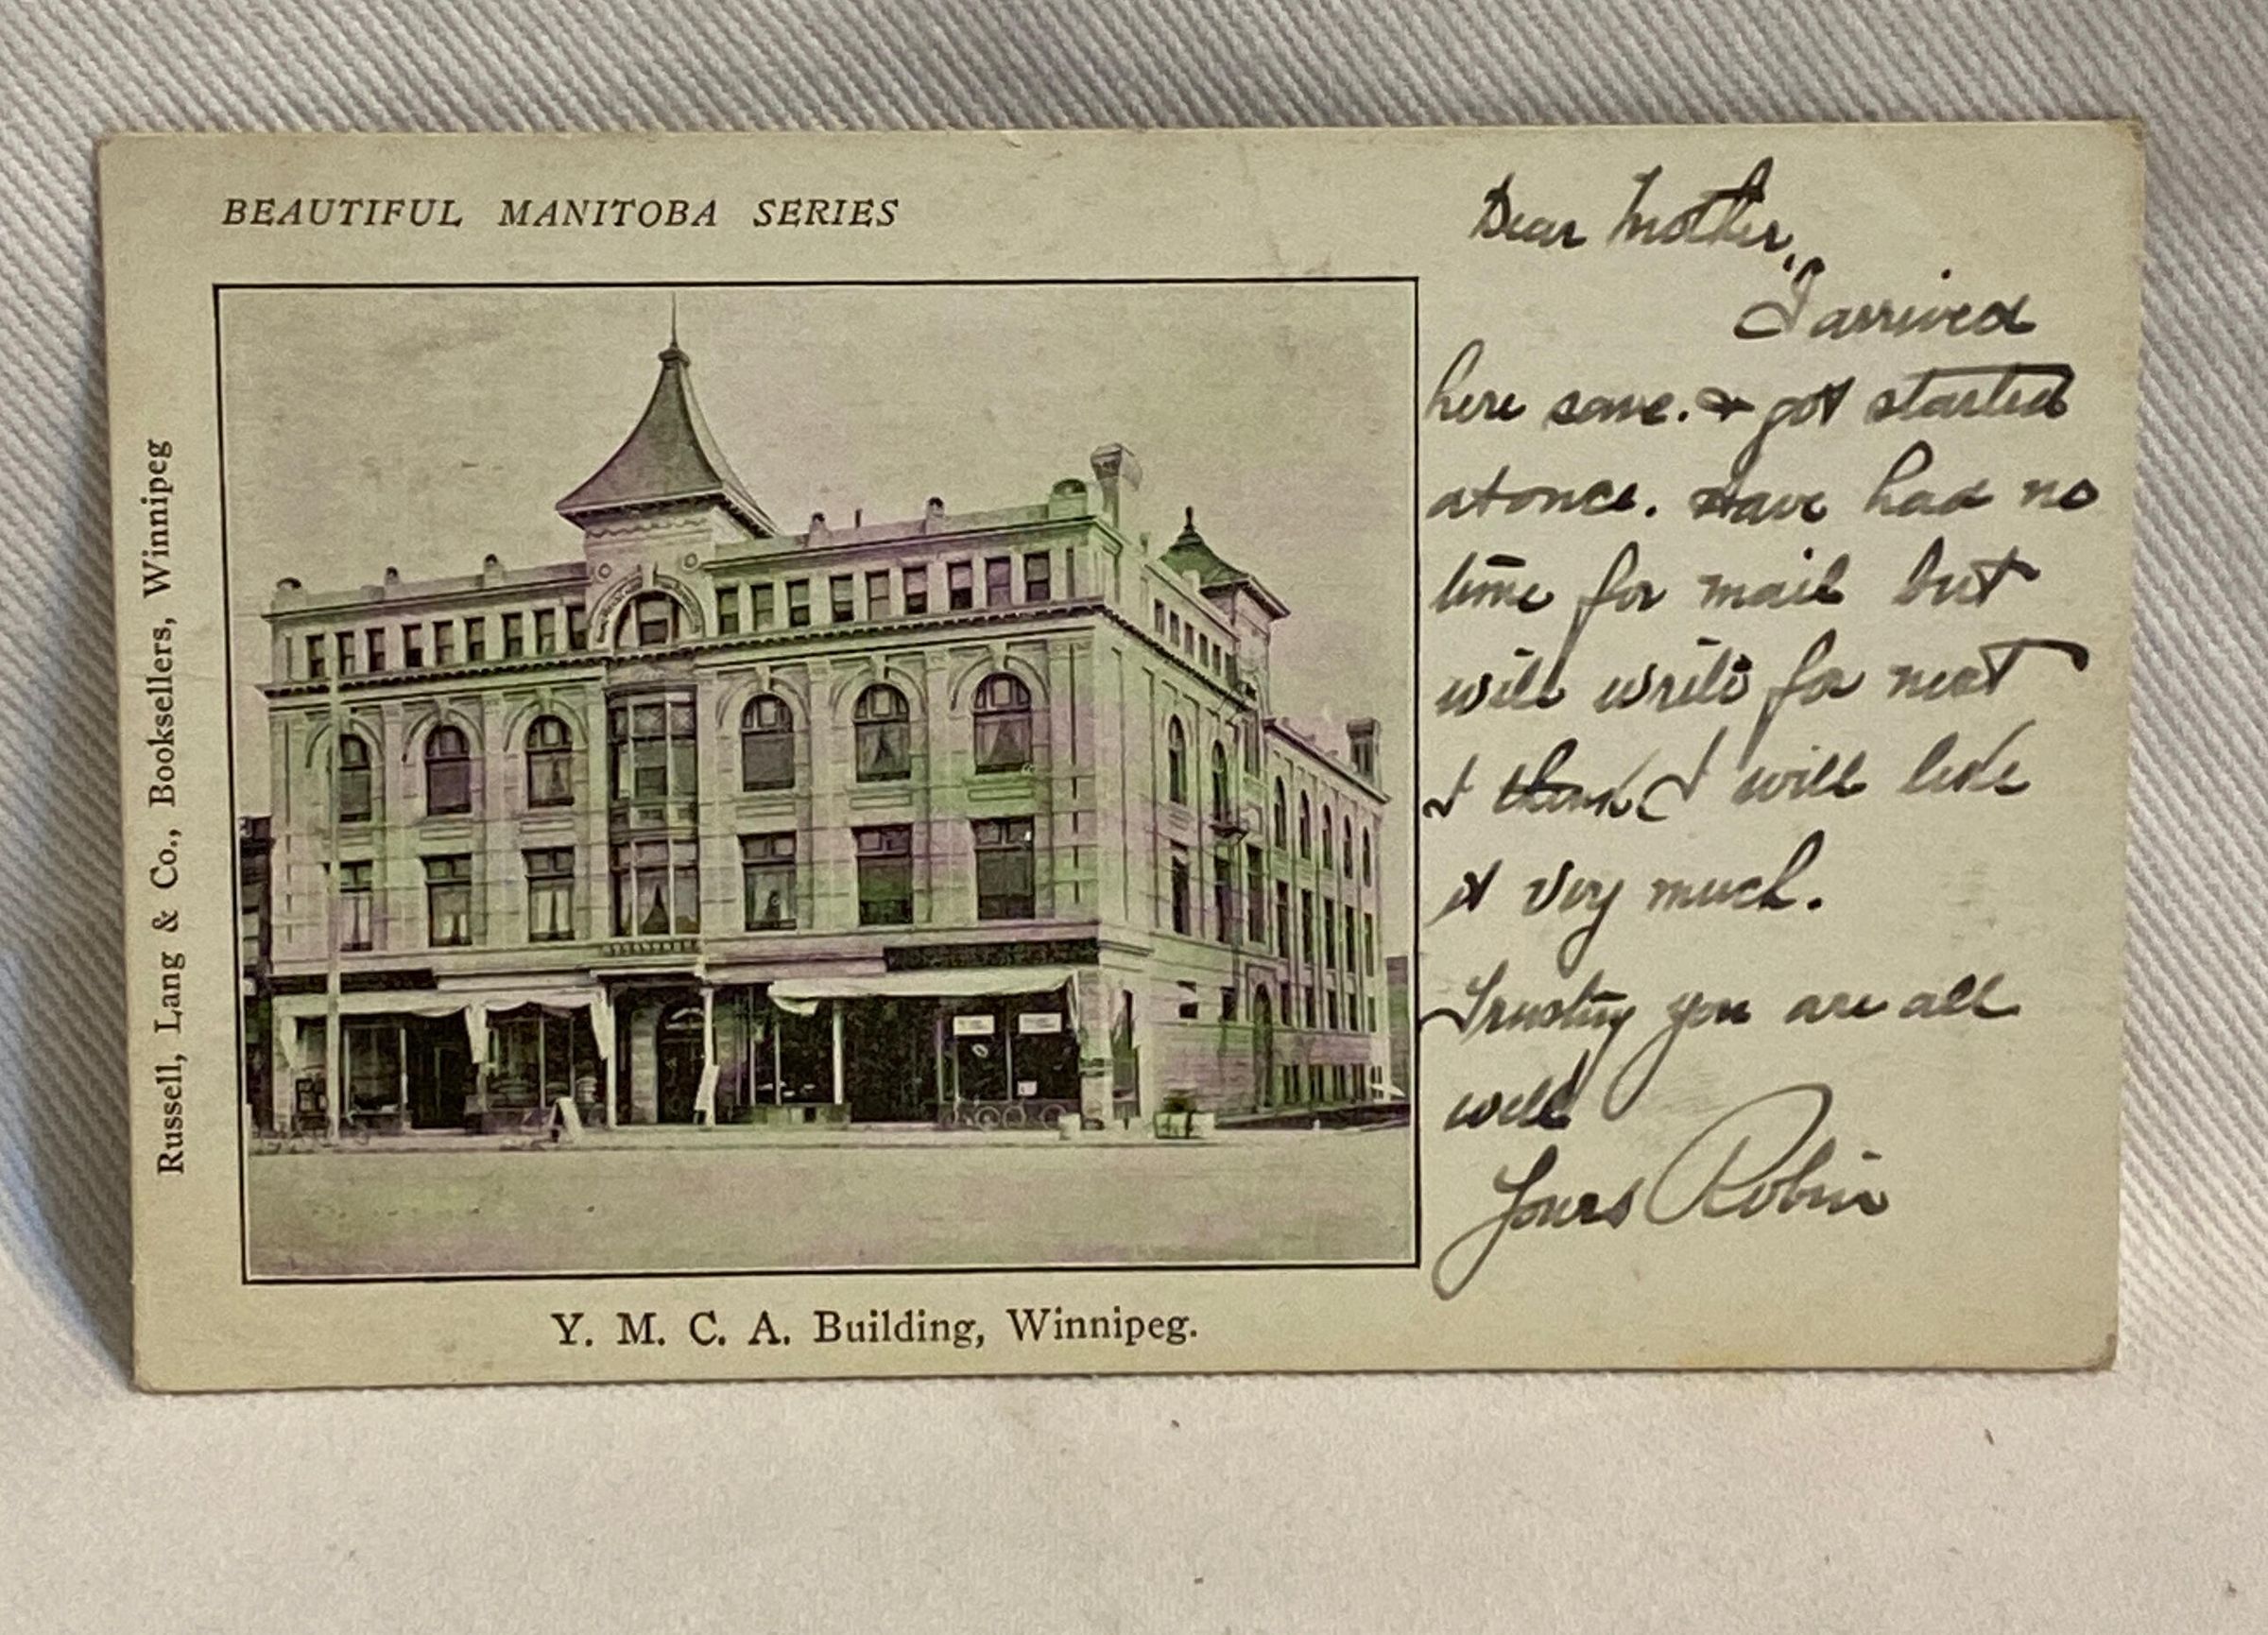 BEAUTIFUL MANITOBA SERIES
Russell, Lang & Co., Booksellers, Winnipeg
Y. M. C. A. Building, Winnipeg.
Dear Mother,
I arrived
here & got started
at once. Have had no
time for mail but
will write for next
I think I will like
it very much.
Trusting you are all
well
Yours Robin